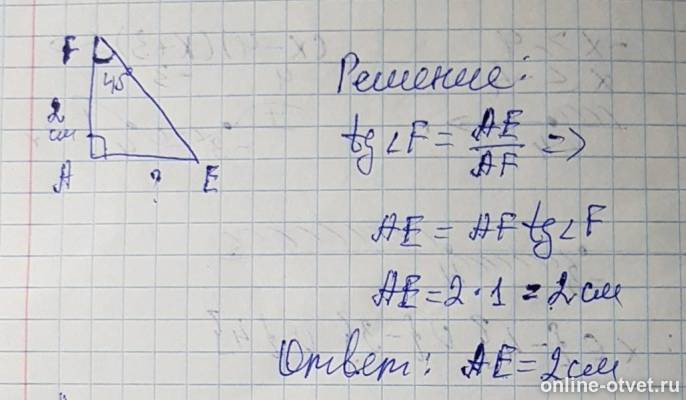 F
45°
2
см
A
?
E
Решение:
tg∠F = AE/AF =>
AE = AF tg∠F
AE = 2 · 1 = 2 см
Ответ: AE = 2 см
online-otvet.ru